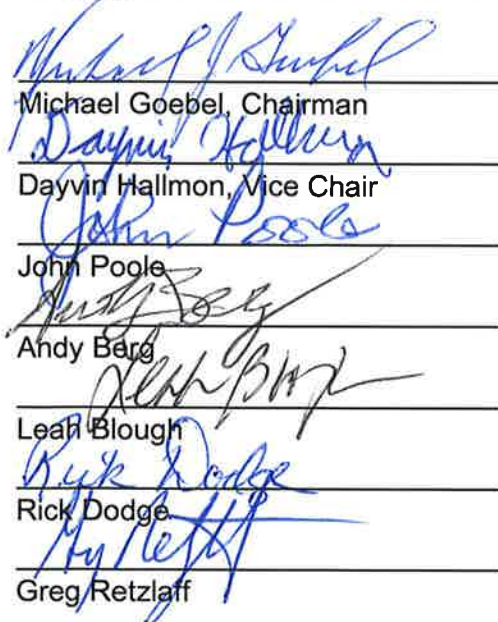 Michael J Goebel
Michael Goebel, Chairman
Dayvin Hallmon
Dayvin Hallmon, Vice Chair
John Poole
John Poole
Andy Berg
Andy Berg
Leah Blough
Leah Blough
Rick Dodge
Rick Dodge
Greg Retzlaff